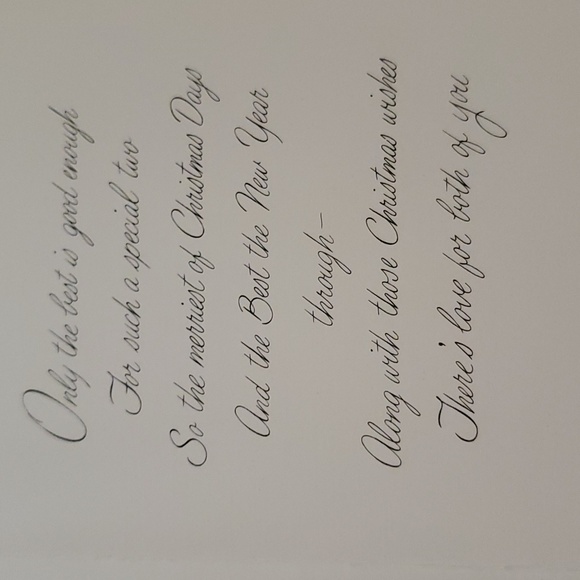 Only the best is good enough
For such a special two
So the merriest of Christmas Days
And the Best the New Year
through—
Along with those Christmas wishes
There's love for both of you